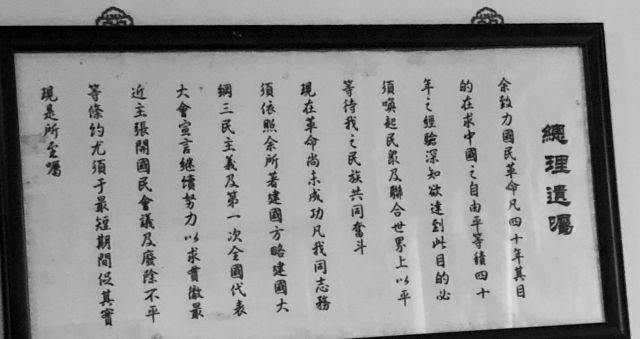 總理遺囑
余致力國民革命凡四十年其目
的在求中國之自由平等積四十
年之經驗深知欲達到此目的必
須喚起民眾及聯合世界上以平
等待我之民族共同奮斗
現在革命尚未成功凡我同志務
須依照余所著建國方略建國大
綱三民主義及第一次全國代表
大會宣言繼續努力以求貫徹最
近主張開國民會議及廢除不平
等條約尤須于最短期間促其實
現是所至囑